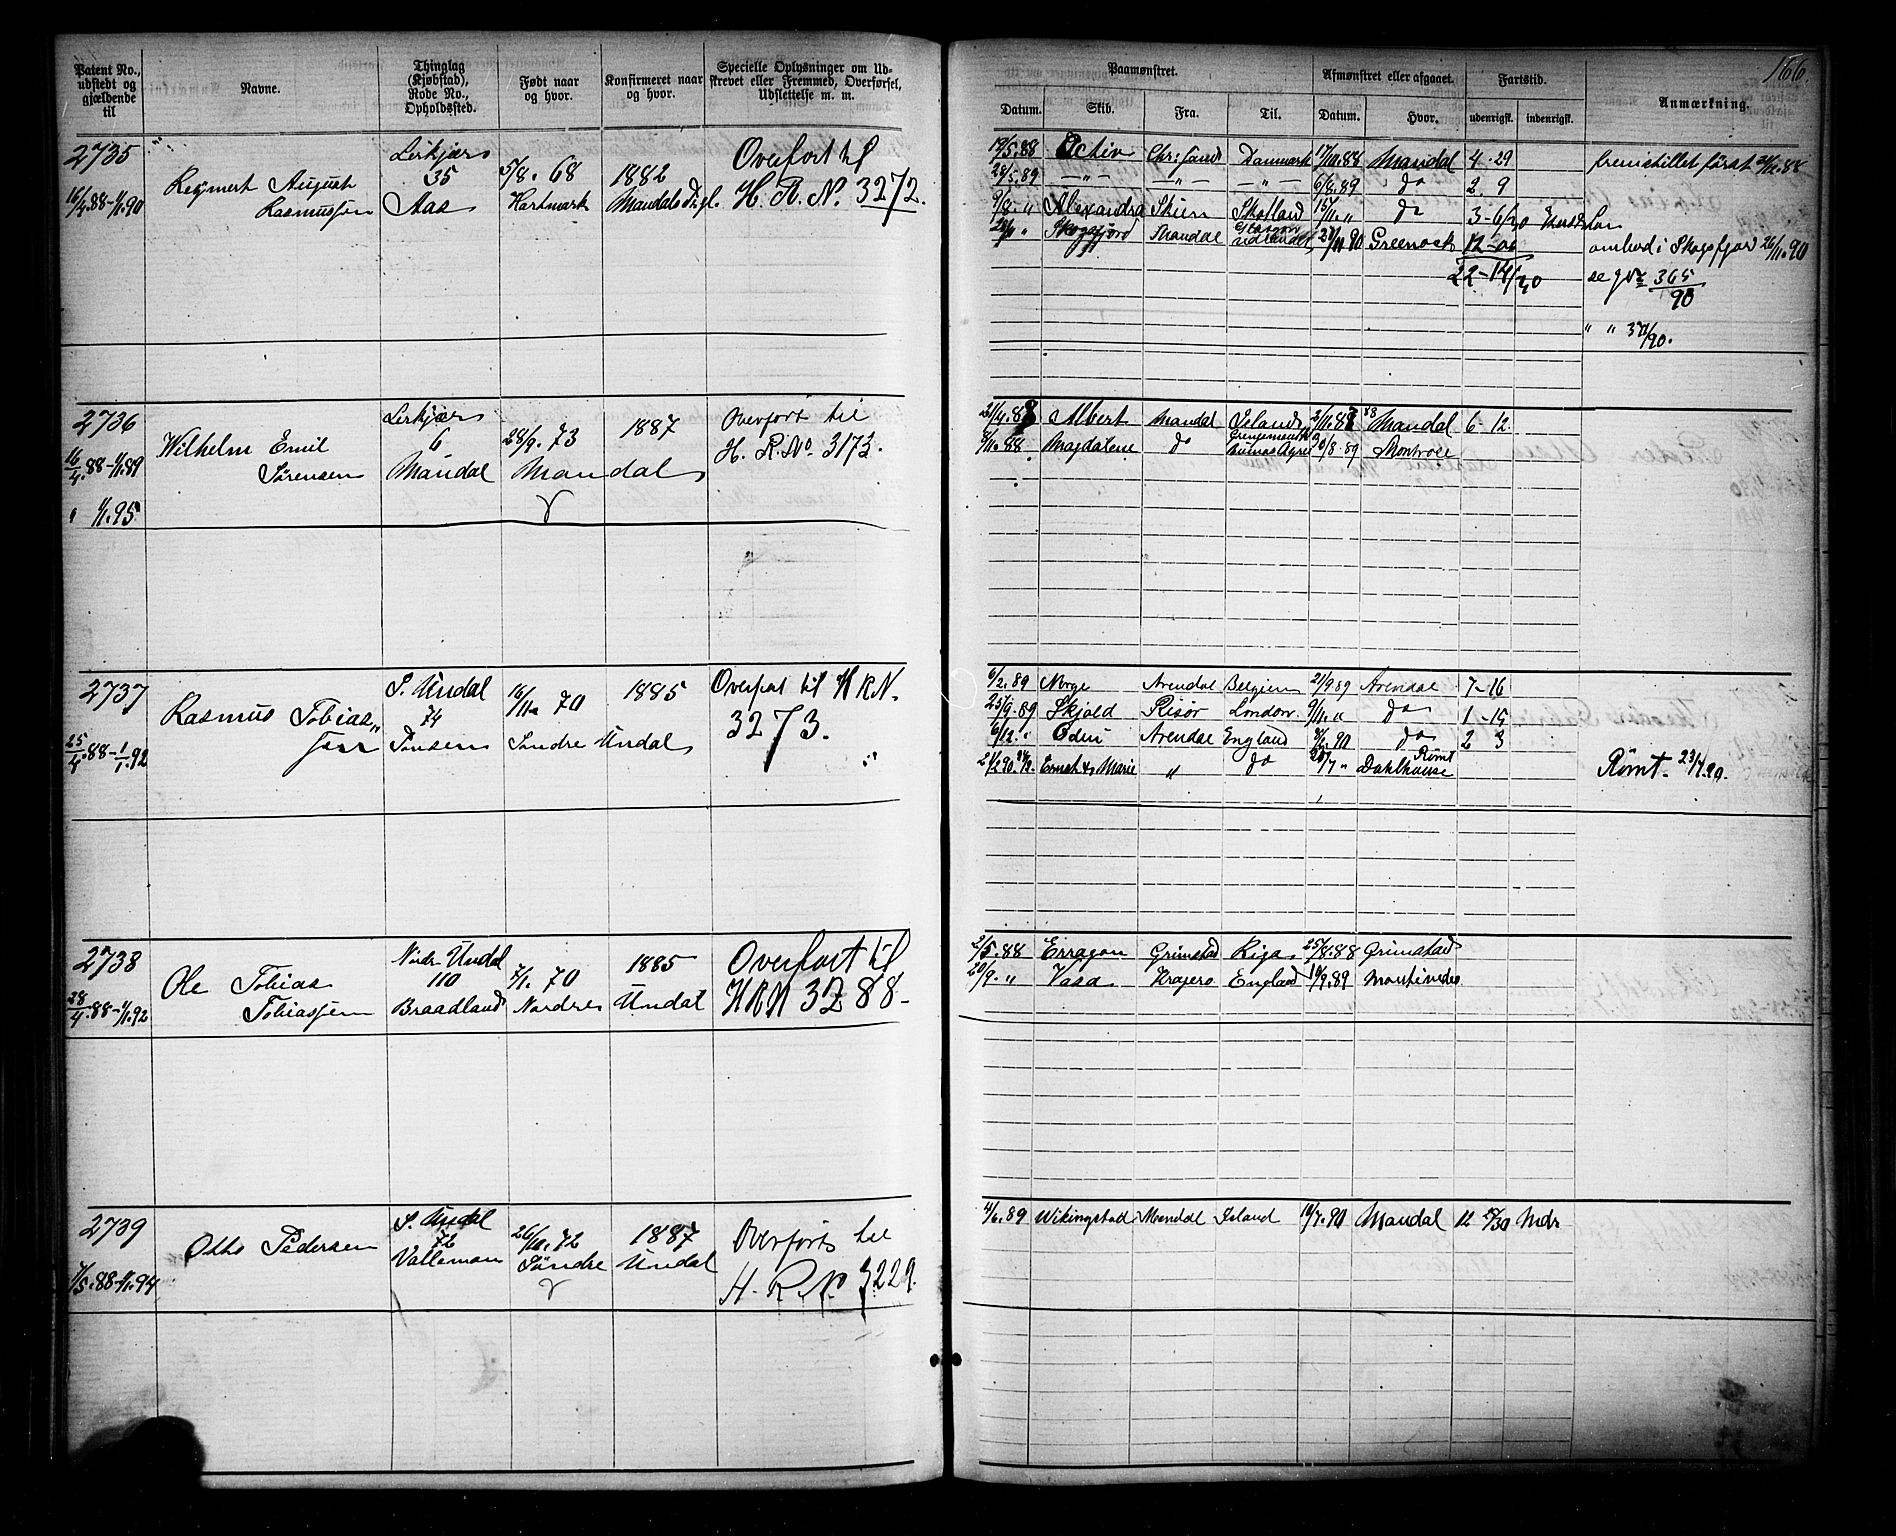 166.
Patent No., udstedt og gjældende til
Navne.
Thinglag (Kjøbstad), Rode No., Opholdssted.
Født naar og hvor.
Konfirmeret naar og hvor.
Specielle Oplysninger om Udskrevet eller Fremmed, Overførsel, Udslettelse m. m.
Paamønstret.
Datum. Skib. Fra. Til.
Afmønstret eller afgaaet.
Datum. Hvor.
Fartstid.
udenrigsk. indenrigsk.
Anmærkning.
2735
16/4.88-1/1.90
Reijmert August
Rasmussen
Lerkjær
35
Aas
5/8. 68
Hartmark
1882
Mandals
Overført til
H. R. N. 3272.
19/5.88 Activ Chr:sand Danmark 17/10.88 Mandal 4-29
28/5.89 — " — — " — — " — 6/8.89 do 2. 9
9/8. " Alexandra Skien Skotland 15/11 " do 3-6/30
Skogsfjord Mandal 90 Greenock 12-00
22-14/30
fremstillet først 88
ombord i Skogsfjord 26/11.90
se 365/90
2736
16/4.88-1/1.89
" 1/1.95
Wilhelm Emil
Sørensen
Lerkjær
6
Mandal
28/9. 73
Mandal
1887
Overført til
H. R. No. 3173.
21/4.88 Albert Mandal Island 88 Mandal 6-12
88 Magdalene do Buenos Ayres 30/8.89 Montrose
2737
25/4.88-1/1.92
Rasmus Tobias
S. Undal
74
16/11 70
Søndre Undal
1885
Overført til H R N.
3273.
6/2.89 Norge Arendal Belgien 21/9 89 Arendal 7-16
25/9.89 Skjold Risør London 9/11. " do 1-15
6/12. " Odin Arendal England 90 do 2 3
Ernst & Marie " do " Rømt
Dahlhouse
Rømt. 23/7.90.
2738
28/4.88-1/1.92
Ole Tobias
Tobiassen
Nordr Undal
110
Braadland
7/1. 70
Nordre Undal
1885
Overført til
H R N 3288-
2/5.88 Erragon Grimstad Riga 25/8.88 Grimstad
20/9. " Vasa Kragerø England 89
2739
7/5.88-1/1.94
Otto Pedersen
S. Undal
72
Valleman
26/10. 72
Søndre Undal
1887
Overførts til
H. R. No 3229.
4/6.89 Wikingstad Mandal Island 14/7.90 Mandal 12 29/30 Mdr